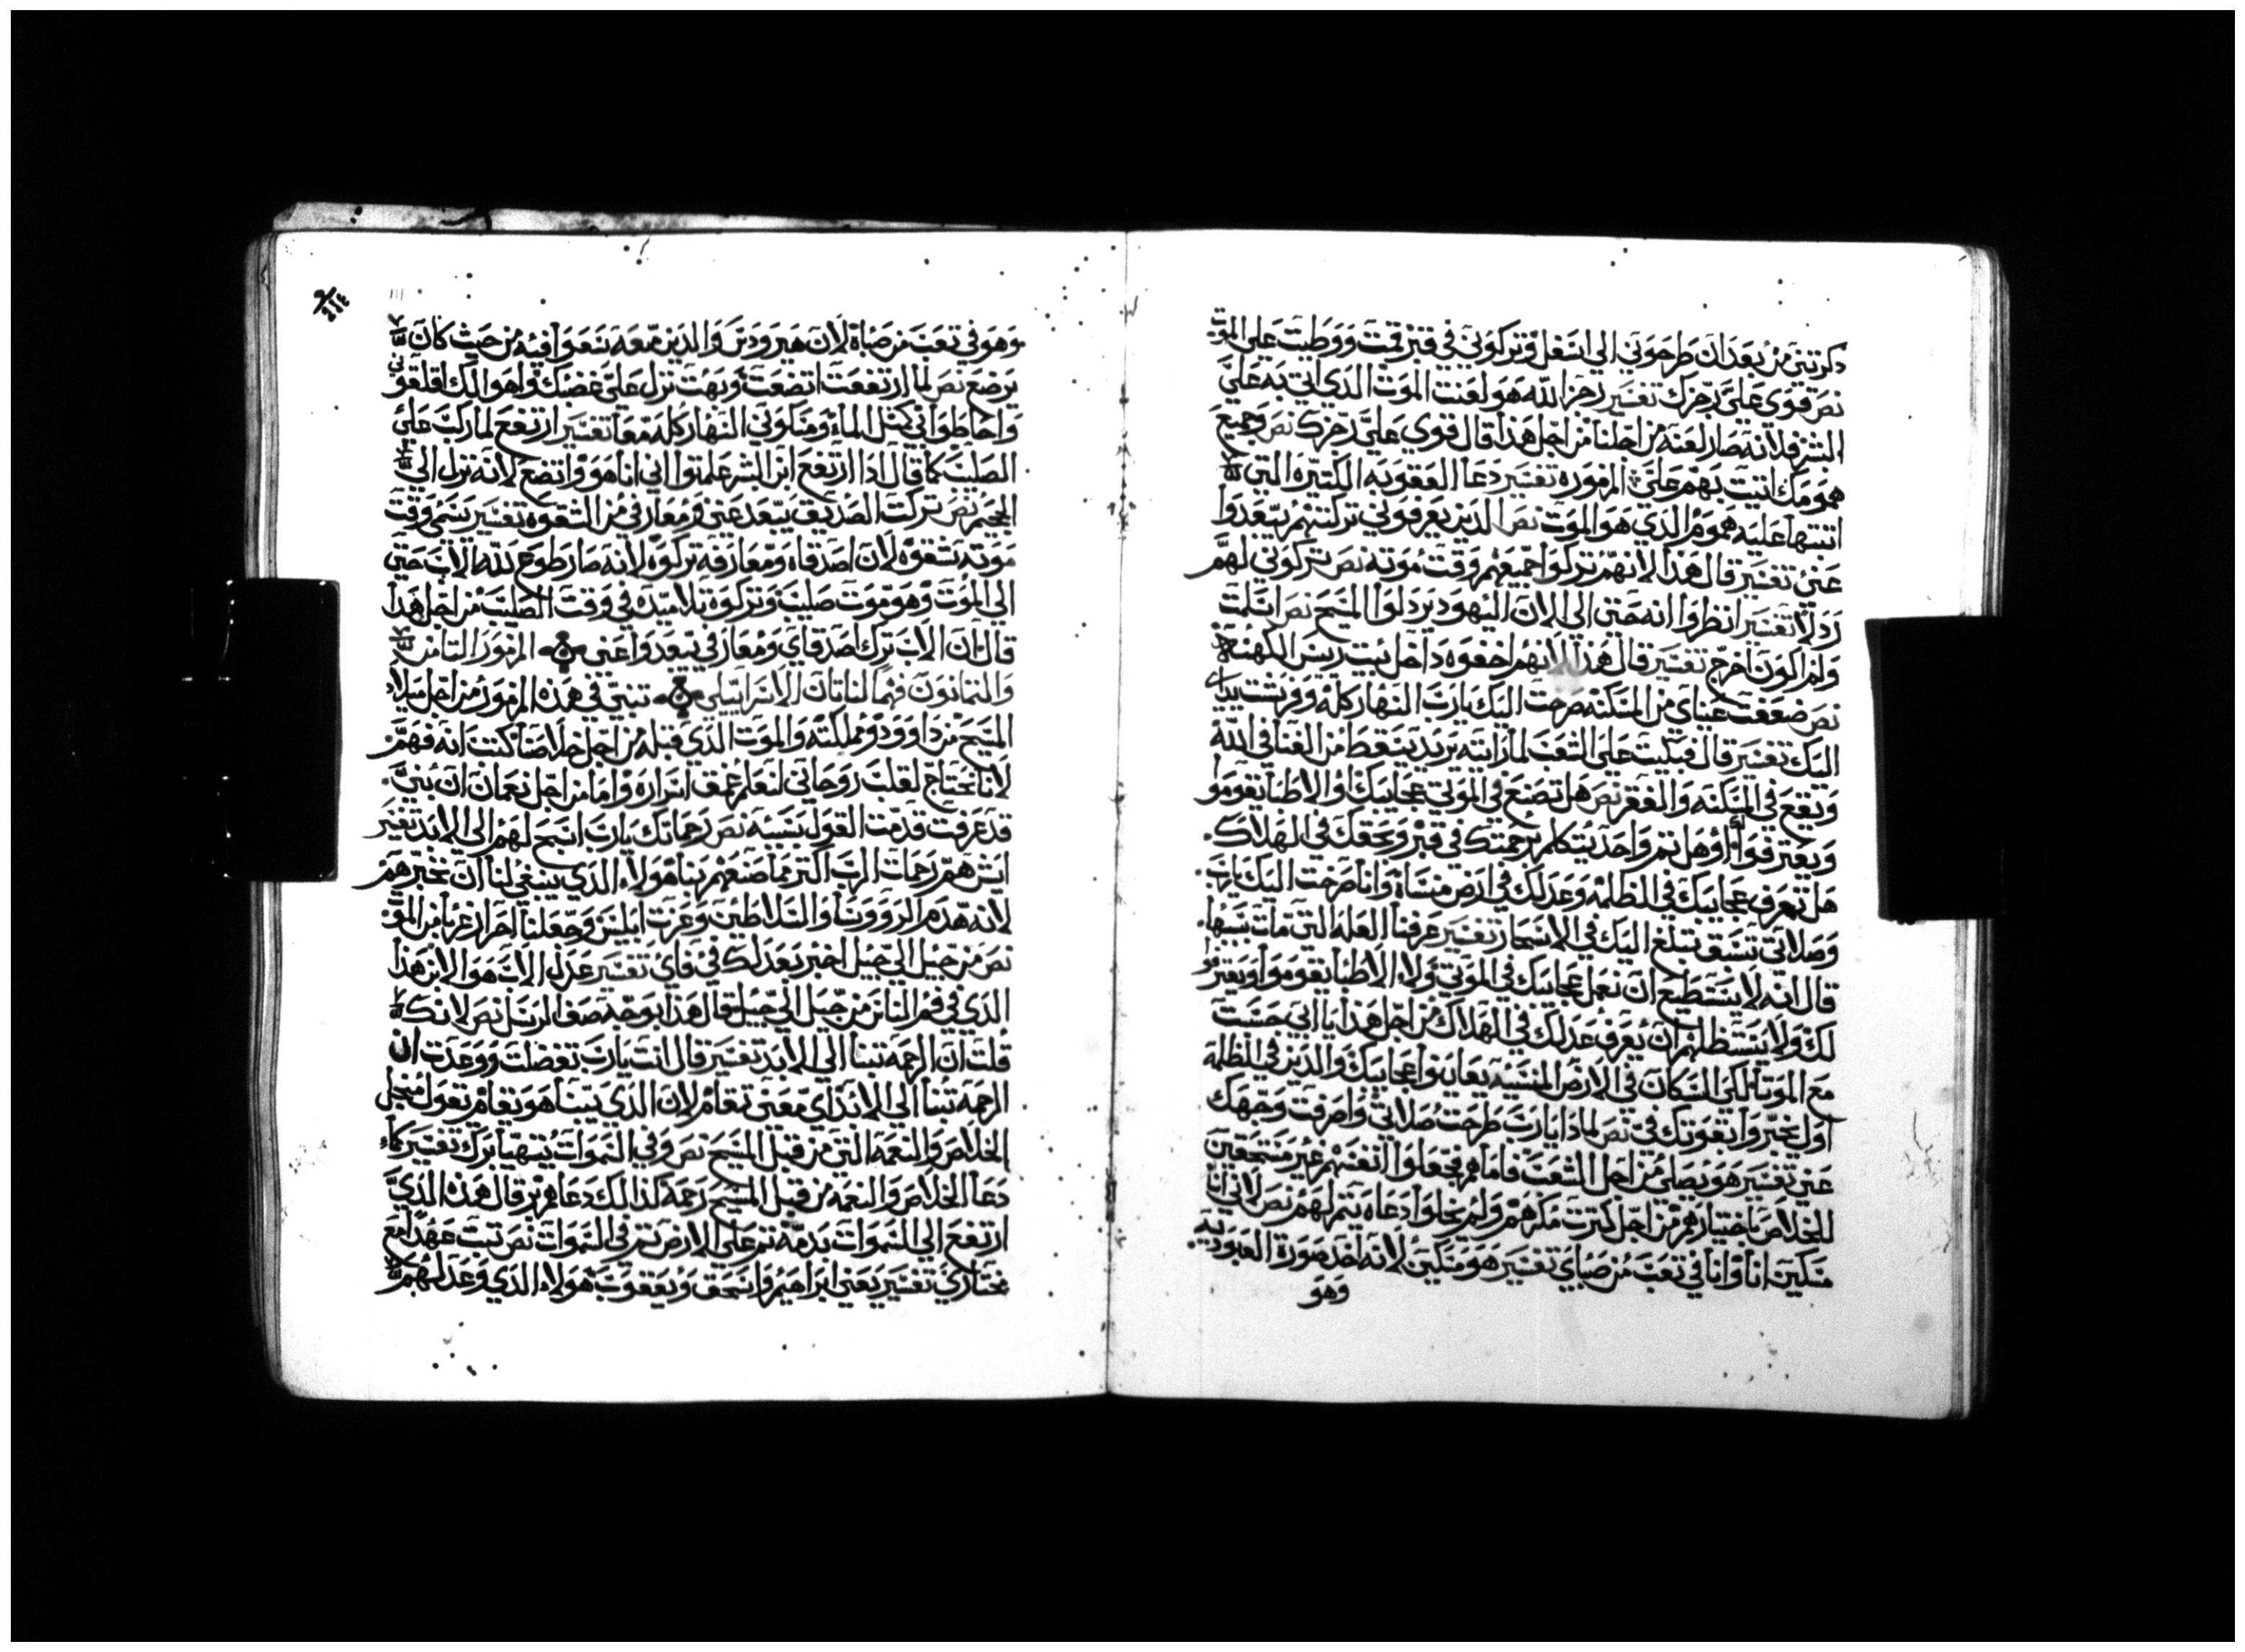 دكرتني من بعد ان طرحوني الي اسفل وتركوني في قبر قمت ووطيت علي الموت
نص قوي علي رجزك تفسير رجز الله هو لعنت الموت الدي اتي به علي
البشر فلانه صار لعنه من اجلنا من اجل هدا قال قوي علي رجزك نص وجميع
همومك اتيت بهم علي المزموره تفسير دعا العقوبه الكتيره التي
انتبتها عليه هموم الدي هو الموت نص الدين يعرفوني تركتهم يتبعدوا
عني تفسير قال هدا لانهم تركوا جميعهم وقت موته نص تركوني لهم
ردلا تفسير انظروا انه حتي الي الان اليهود يردلوا المسيح نص اسلمت
ولم اكون اخرج تفسير قال هدا لانهم اخفوه داخل بيت ريس الكهنه
نص ضعفت عيناي من المسكنه صرخت اليك يارب النهار كله وفرشت يداي
اليك تفسير قال فبكيت علي الشعب لما رايته يريد يسقط من الغنا في الله
ويقع في المسكنه والفقر نص هل تصنع في الموتي عجايبك او الاطبا يقوموا
ويعترفوا او هل تم واحد يتكلم برحمتك في قبر وبحقك في الهلاك
هل تعرف عجايبك في الظلمه وعدلك في ارض منساه وانا صرخت اليك يارب
وصلاتي تسبق تبلغ اليك في الاسحار تفسير عرفنا العله التي مات بسببها
قال انه لا يستطيع ان تعمل عجايبك في الموتي ولا الاطبا يقوموا ويعترفوا
لك ولا يستطلهم ان يعرف عدلك في الهلاك من اجل هدا يا ابي حسبت
مع الموتا لكي السكان في الارض المنسيه يعاينوا عجايبك والدين في الظلمه
اول يخبروا بقوتك في نص لمادا يارب طرحت صلاتي واصرفت وجهك
عني تفسير هو يصلي من اجل الشعب فاما هم فجعلوا انفسهم غير مستحقين
للخلاص باختيارهم من اجل كترت مكرهم ولم يخلوا دعاه يتم لهم نص لاني انا
مسكين انا وانا في تعب من صباي تفسير هو مسكين لانه اخد صورة العبوديه
وهو
وهو في تعب من صباه لان هيرودس والدين معه سعوا فيه من حيث كان
يرضع نص لما ارتفعت اتضعت وبهت نزل علي غضبك واهوالك اقلقوني
واحاطوا في كتل الماء ومسكوني النهار كله معا تفسير ارتفع لما ركب علي
الصليب كما قال ادا ارتفع ابن البشر علمتوا اني انا هو واتضع لانه نزل الي
الجحيم نص تركت الصديق يبعد عني ومعارفي من الشقوه تفسير يسمي وقت
موته شقوه لان اصدقاه ومعارفه تركوه لانه صار طوع لله الاب حتي
الي الموت وهو موت صليب وتركوه تلاميده في وقت الصليب من اجل هدا
قال ان الاب ترك اصدقاي ومعارفي يبعدوا عني المزمور التامن
والتمانون فهما لناتان الاسراييلي تنبي في هده المزمور من اجل ميلاد
المسيح من داوود ومملكته والموت الدي قبله من اجل خلاصنا كتب انه فهم
لانا نحتاج لقلب روحاني لنعلم عمق اسراره واما من اجل نعمان ان بني
قد عرفت قدمت القول بسببه نص رحماتك يارب اسبح لهم الي الابد تفسير
ايش هم رحمات الرب اكتر مما صنعهم بنا هولاء الدي ينبغي لنا ان نخبرهم
لانه هدم الرووسا والسلاطين وعزت ابليس وجعلنا احرار غربا من الموت
نص من جيل الي جيل اخبر بعدلك في فاي تفسير عدل الاب هو الابن هدا
الدي في فم الناس من جيل الي جيل قال هدا بوجه صف الرسل نص لانك
قلت ان الرحمه تبنا الي الابد تفسير قال انت يارب تفضلت ووعدت ان
الرحمه تبنا الي الابد اي معني تقام لان الدي يبنا هو يقام يقول من اجل
الخلاص والنعمه التي من قبل المسيح نص وفي السموات يتهيا برك تفسير كما
دعا الخلاص والنعمه من قبل المسيح رحمه كدالك دعاهم بر قال هده الدي
ارتفع الي السموات بدمه تم علي الارض تم في السموات نص تبت عهدا مع
مختاري تفسير يعني ابراهيم واسحق ويعقوب هولاء الدي وعد لهم